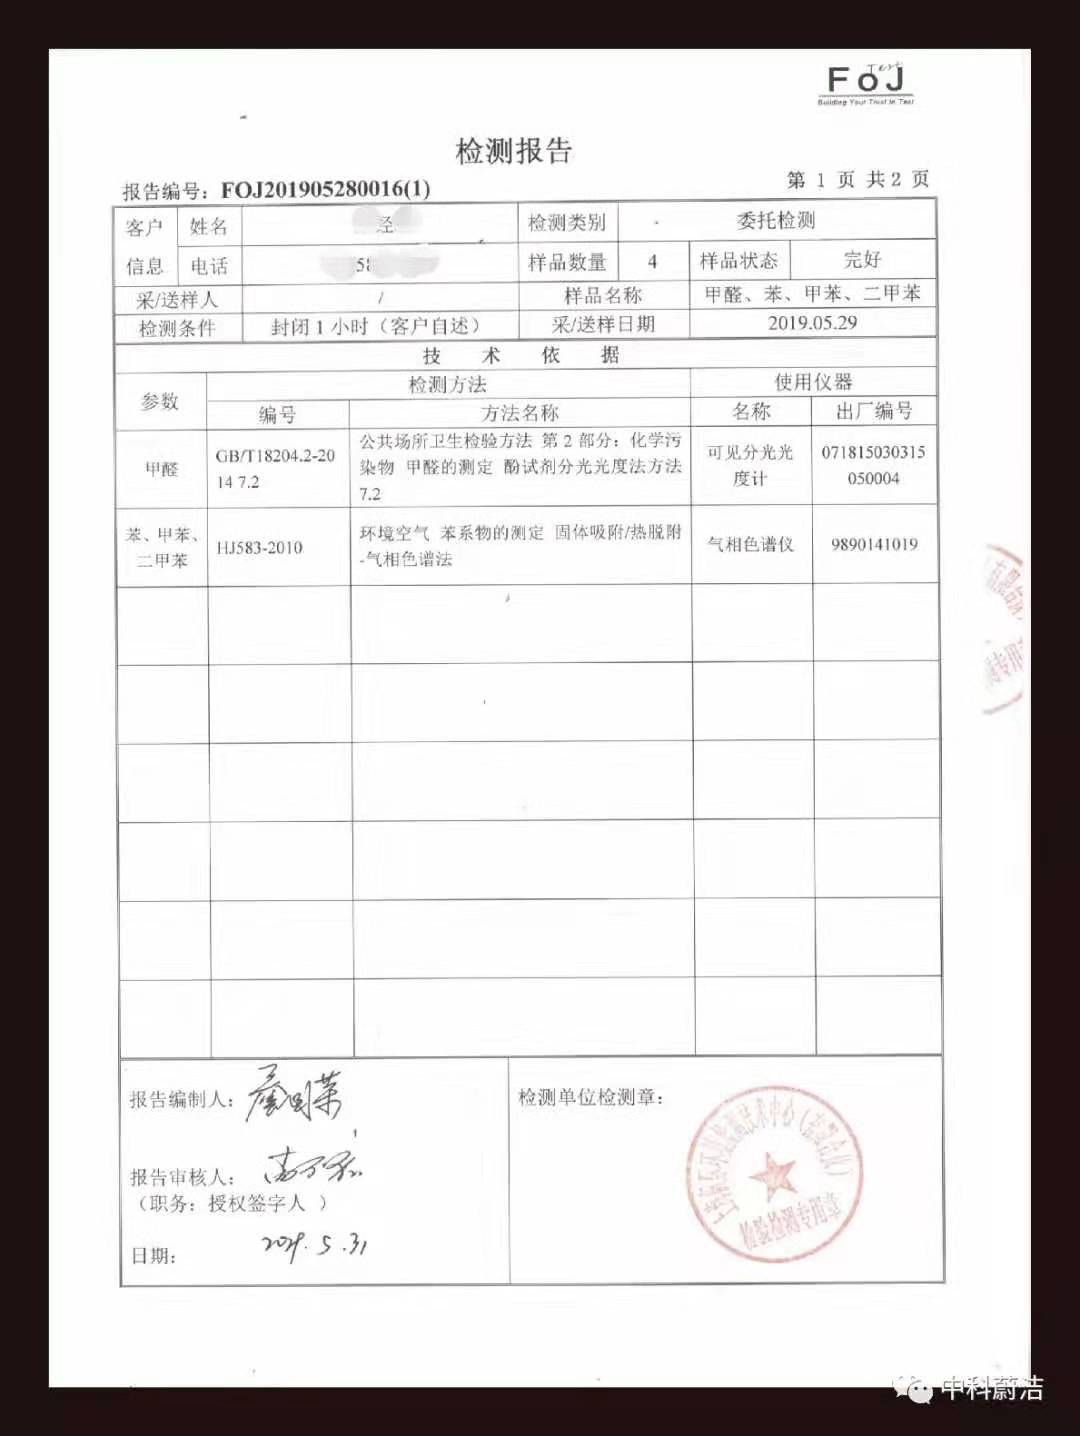 Test
FoJ
Building Your Trust In Test
检测报告
报告编号：FOJ201905280016(1)
第 1 页 共2 页
客户信息 姓名 经 检测类别 委托检测
电话 58 样品数量 4 样品状态 完好
采/送样人 / 样品名称 甲醛、苯、甲苯、二甲苯
检测条件 封闭1小时（客户自述） 采/送样日期 2019.05.29
技 术 依 据
参数 检测方法 使用仪器
编号 方法名称 名称 出厂编号
甲醛 GB/T18204.2-20
14 7.2
公共场所卫生检验方法 第2部分：化学污
染物 甲醛的测定 酚试剂分光光度法方法
7.2
可见分光光
度计
071815030315
050004
苯、甲苯、
二甲苯
HJ583-2010
环境空气 苯系物的测定 固体吸附/热脱附
-气相色谱法
气相色谱仪
9890141019
报告编制人：
检测单位检测章：
报告审核人：
（职务：授权签字人 ）
日期：
2019.5.31
检验检测专用章
中科蔚洁